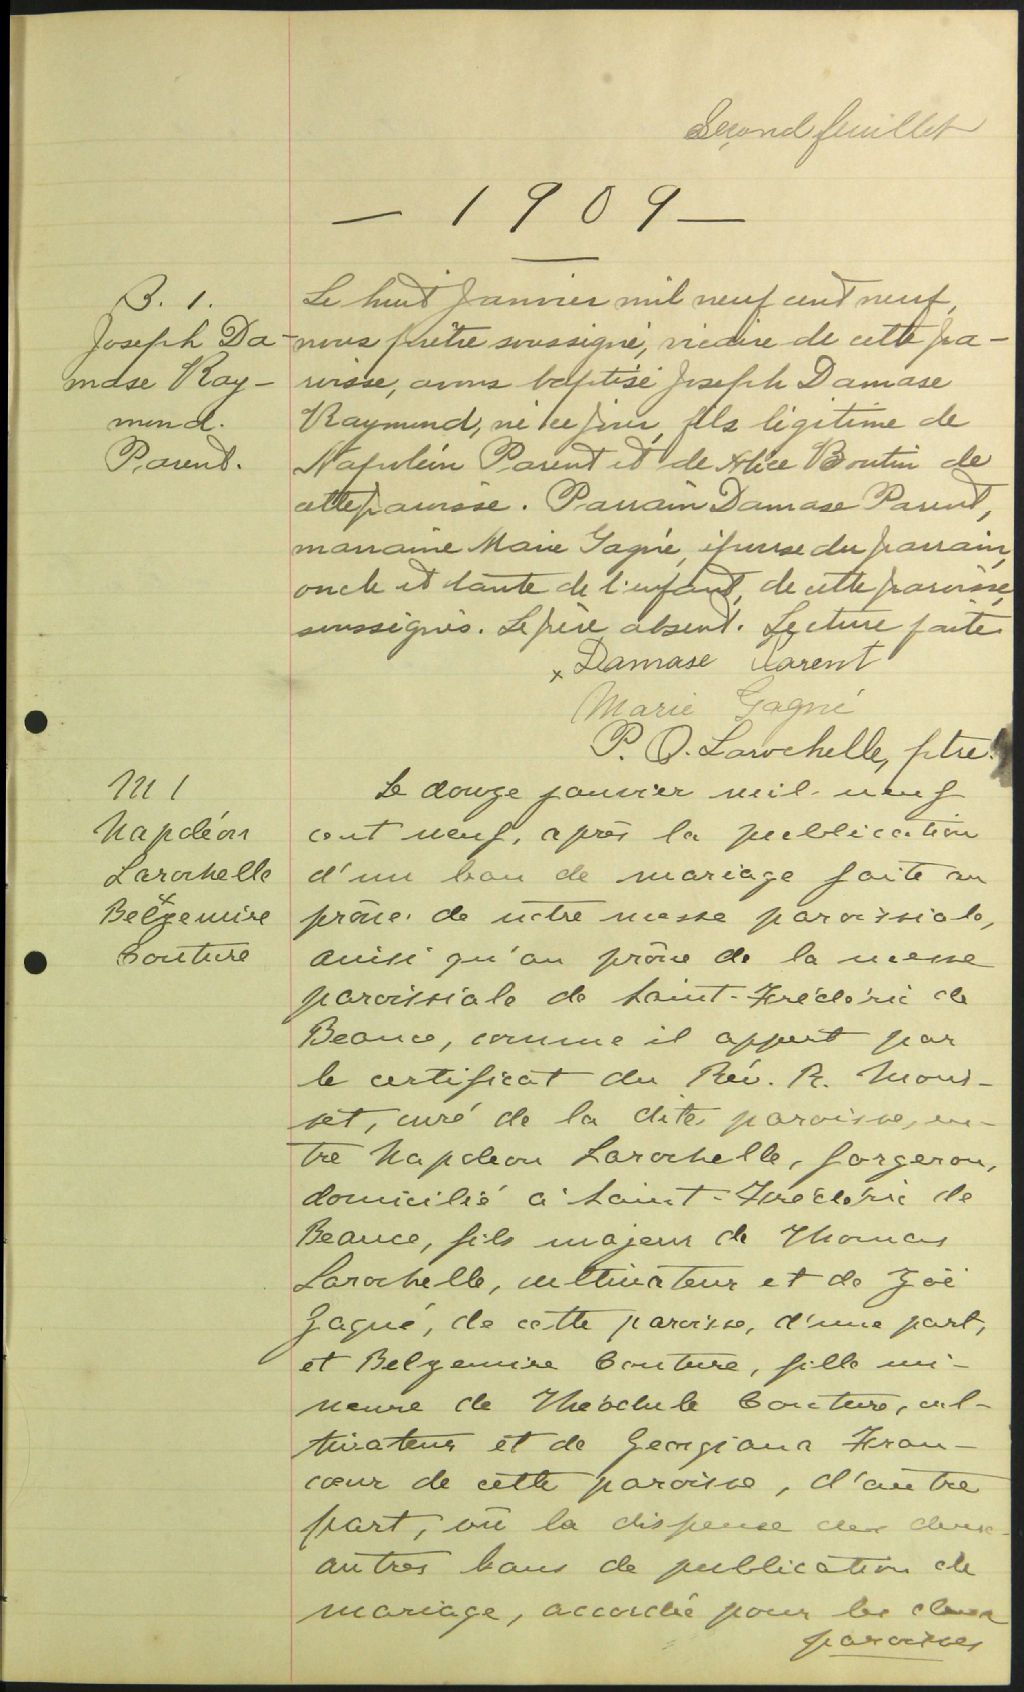 Second feuillet
— 1909 —
B. 1.
Joseph Da-
mase Ray-
mond.
Parent.
Le huit janvier mil neuf cent neuf,
nous prêtre soussigné, vicaire de cette pa-
roisse, avons baptisé Joseph Damase
Raymond, né ce jour, fils légitime de
Napoléon Parent et de Alice Boutin de
cette paroisse. Parrain Damase Parent,
marraine Marie Gagné, épouse du parrain,
oncle et tante de l'enfant, de cette paroisse,
soussignés. Le père absent. Lecture faite.
x Damase Parent
Marie Gagné
P. O. Larochelle, ptre.
M 1
Napoléon
Larochelle
&
Belzemire
Couture
Le douze janvier mil-neuf
cent neuf, après la publication
d'un ban de mariage faite au
prône de notre messe paroissiale,
ainsi qu'au prône de la messe
paroissiale de Saint-Frédéric de
Beauce, comme il appert par
le certificat du Rév. R. Mous-
set, curé de la dite paroisse, en-
tre Napoléon Larochelle, forgeron,
domicilié à Saint-Frédéric de
Beauce, fils majeur de Thomas
Larochelle, cultivateur et de Zoë
Gagné, de cette paroisse, d'une part,
et Belzemire Couture, fille mi-
neure de Théodule Couture, cul-
tivateur et de Georgiana Fran-
cœur de cette paroisse, d'autre
part, vu la dispense des deux
autres bans de publication de
mariage, accordée pour les deux
paroisses